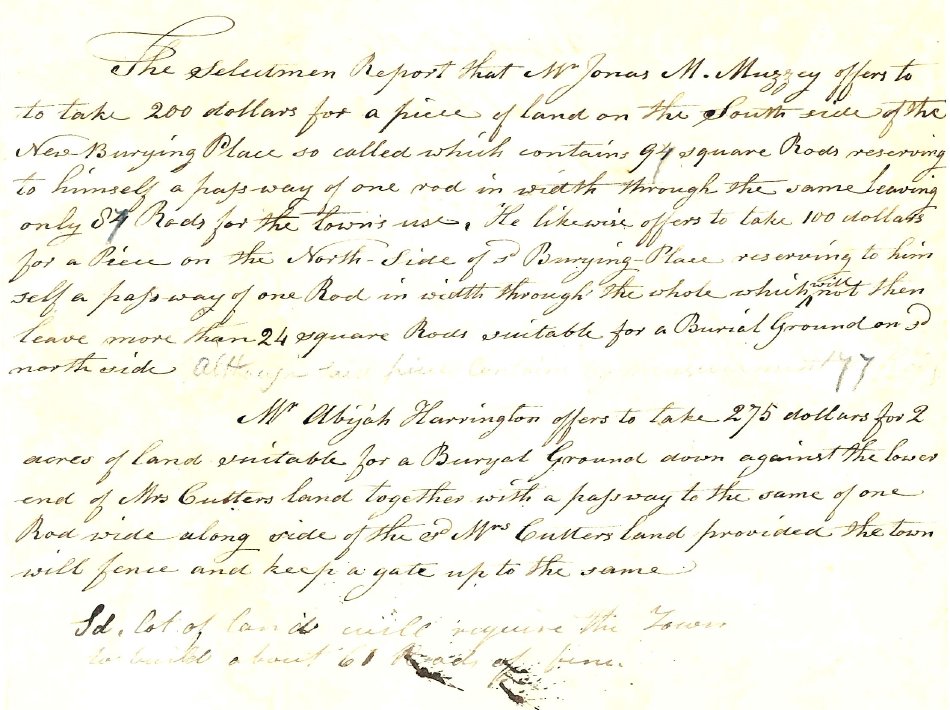 The Selectmen Report that Mr Jonas M. Muzzey offers to
to take 200 dollars for a piece of land on the South side of the
New Burying Place so called which contains 94 square Rods reserving
to himself a passway of one rod in width through the same leaving
only 87 Rods for the town's use. He likewise offers to take 100 dollars
for a Piece on the North-Side of sd Burying-Place reserving to him
self a passway of one Rod in width through the whole which will not then
leave more than 24 square Rods suitable for a Burial Ground on sd
north side although said piece contains 77
Mr Abijah Harrington offers to take 275 dollars for 2
acres of land suitable for a Buryal Ground down against the lower
end of Mrs Cutters land together with a passway to the same of one
Rod wide along side of the sd Mrs Cutters land provided the town
will fence and keep a gate up to the same
Sd. lot of land will require the Town
to build about 61 Roads of fence